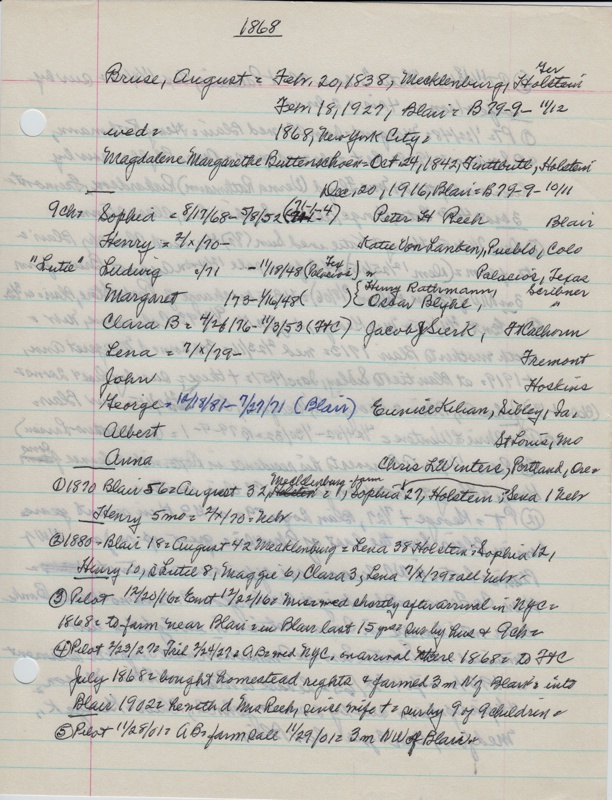 1868
Bruse, August = Febr. 20, 1838, Mecklenburg, Ger Holstein
Febr 18, 1927, Blair = B 79-9- 11/12
wed = 1868, New York City =
Magdalene Margarethe Buttenschoen = Oct 24, 1842, Holstein
Dec, 20, 1916, Blair = B 79-9- 10/11
9 ch = Sophia = 8/17/68 - 5/8/52 (71-1-4) Peter H Reeh Blair
Henry = 2/x/70 - Katie Von Lanken, Pueblo, Colo
"Lutie" Ludwig /71 - 11/18/48 (Tex Palacios) " Palacios, Texas
Margaret /73 - 1/16/48 ( ) { Henry Rathmann, Scribner
{ Oscar Blyhl, "
Clara B = 4/26/76 - 11/3/53 (Ft C) Jacob J Sierk, Ft Calhoun
Lena = 7/x/79 - Fremont
John Hoskins
George = 10/18/81 - 7/27/71 (Blair) Eunice Kilian, Sibley, Ia,
Albert St Louis, Mo
Anna Chris L Winters, Portland, Ore =
① 1870 Blair 56 = August 32, Mecklenburg = 1, Sophia 27, Holstein = Sena 1 Nebr
Henry 5 mo = 2/x/70 = Nebr
② 1880 = Blair 18 = August 42 Mecklenburg = Lena 38 Holstein = Sophia 12,
Henry 10, Lutie 8, Maggie 6, Clara 3, Lena 7/x/79 = all Nebr -
③ Pilot 12/20/16 = Ent 12/22/16 = Mrs = wed shortly after arrival in NYC =
1868 = to farm near Blair = in Blair last 15 yrs = sur by hus & 9 ch =
④ Pilot 2/23/27 = Trib 2/24/27 = AB = wed NYC, on arrival there 1868 = to Ft C
July 1868 = bought homestead rights & farmed 3 m NW Blair = into
Blair 1902 = he moth d Mrs Reeh, since wife + = sur by 9 of 9 children =
⑤ Pilot 11/28/01 = AB = farm sale 11/29/01 = 3 m NW of Blair =